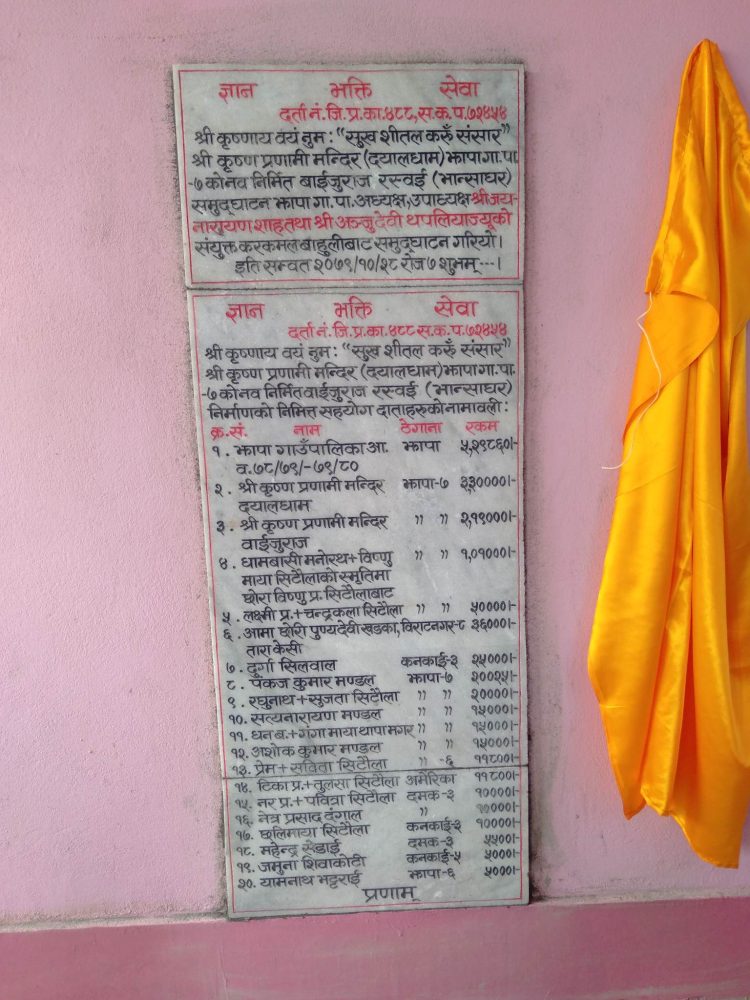 ज्ञान भक्ति सेवा
दर्ता नं. जि.प्र.का.४८८, स.क.प.७२४५४
श्री कृष्णाय वयं नुम : "सुख शीतल करुँ संसार"
श्री कृष्ण प्रणामी मन्दिर (दयालधाम) झापा गा.पा.
-७ को नव निर्मित बाईजुराज रस्वई (भान्साघर)
समुद्घाटन झापा गा.पा. अध्यक्ष, उपाध्यक्ष श्री जय-
नारायण शाह तथा श्री अञ्जुदेवी थपलियाज्यूको
संयुक्त करकमल बाहुलीबाट समुद्घाटन गरियो।
इति सम्वत २०७९/१०/२८ रोज ७ शुभम् ---।
ज्ञान भक्ति सेवा
दर्ता नं. जि.प्र.का.४८८ स.क.प.७२४५४
श्री कृष्णाय वयं नुम : "सुख शीतल करुँ संसार"
श्री कृष्ण प्रणामी मन्दिर (दयालधाम) झापा गा.पा.
-७ को नव निर्मित वाईजुराज रस्वई (भान्साघर)
निर्माणको निमित्त सहयोग दाताहरुको नामावली :
क्र.सं. नाम ठेगाना रकम
१. झापा गाउँपालिका आ. झापा ५,२९८६०।-
व. ७८/७९/-७९/८०
२. श्री कृष्ण प्रणामी मन्दिर झापा-७ ३,३००००।-
दयालधाम
३. श्री कृष्ण प्रणामी मन्दिर " " २,१९०००।-
वाईजुराज
४. धामबासी मनोरथ+विष्णु " " १,०१०००।-
माया सिटौलाको स्मृतिमा
छोरा विष्णु प्र. सिटौलाबाट
५. लक्ष्मी प्र.+चन्द्रकला सिटौला " " ५००००।-
६. आमा छोरी पुण्यदेवी खडका, विराटनगर-८ ३६०००।-
तारा केसी
७. दुर्गा सिलवाल कनकाई-३ २५०००।-
८. पंकज कुमार मण्डल झापा-७ २००२५।-
९. रघुनाथ+सुजता सिटौला " " २००००।-
१०. सत्यनारायण मण्डल " " १५०००।-
११. धन ब.+गंगा माया थापा मगर " " १५०००।-
१२. अशोक कुमार मण्डल " " १५०००।-
१३. प्रेम+सविता सिटौला " -६ ११८००।-
१४. टिका प्र.+तुलसा सिटौला अमेरिका ११८००।-
१५. नर प्र.+पवित्रा सिटौला दमक-३ १००००।-
१६. नेत्र प्रसाद दंगाल " १००००।-
१७. छलिमाया सिटौला कनकाई-३ १००००।-
१८. महेन्द्र सेढाई दमक-३ ५५००।-
१९. जमुना शिवाकोटी कनकाई-५ ५०००।-
२०. यामनाथ भट्टराई झापा-६ ५०००।-
प्रणाम्